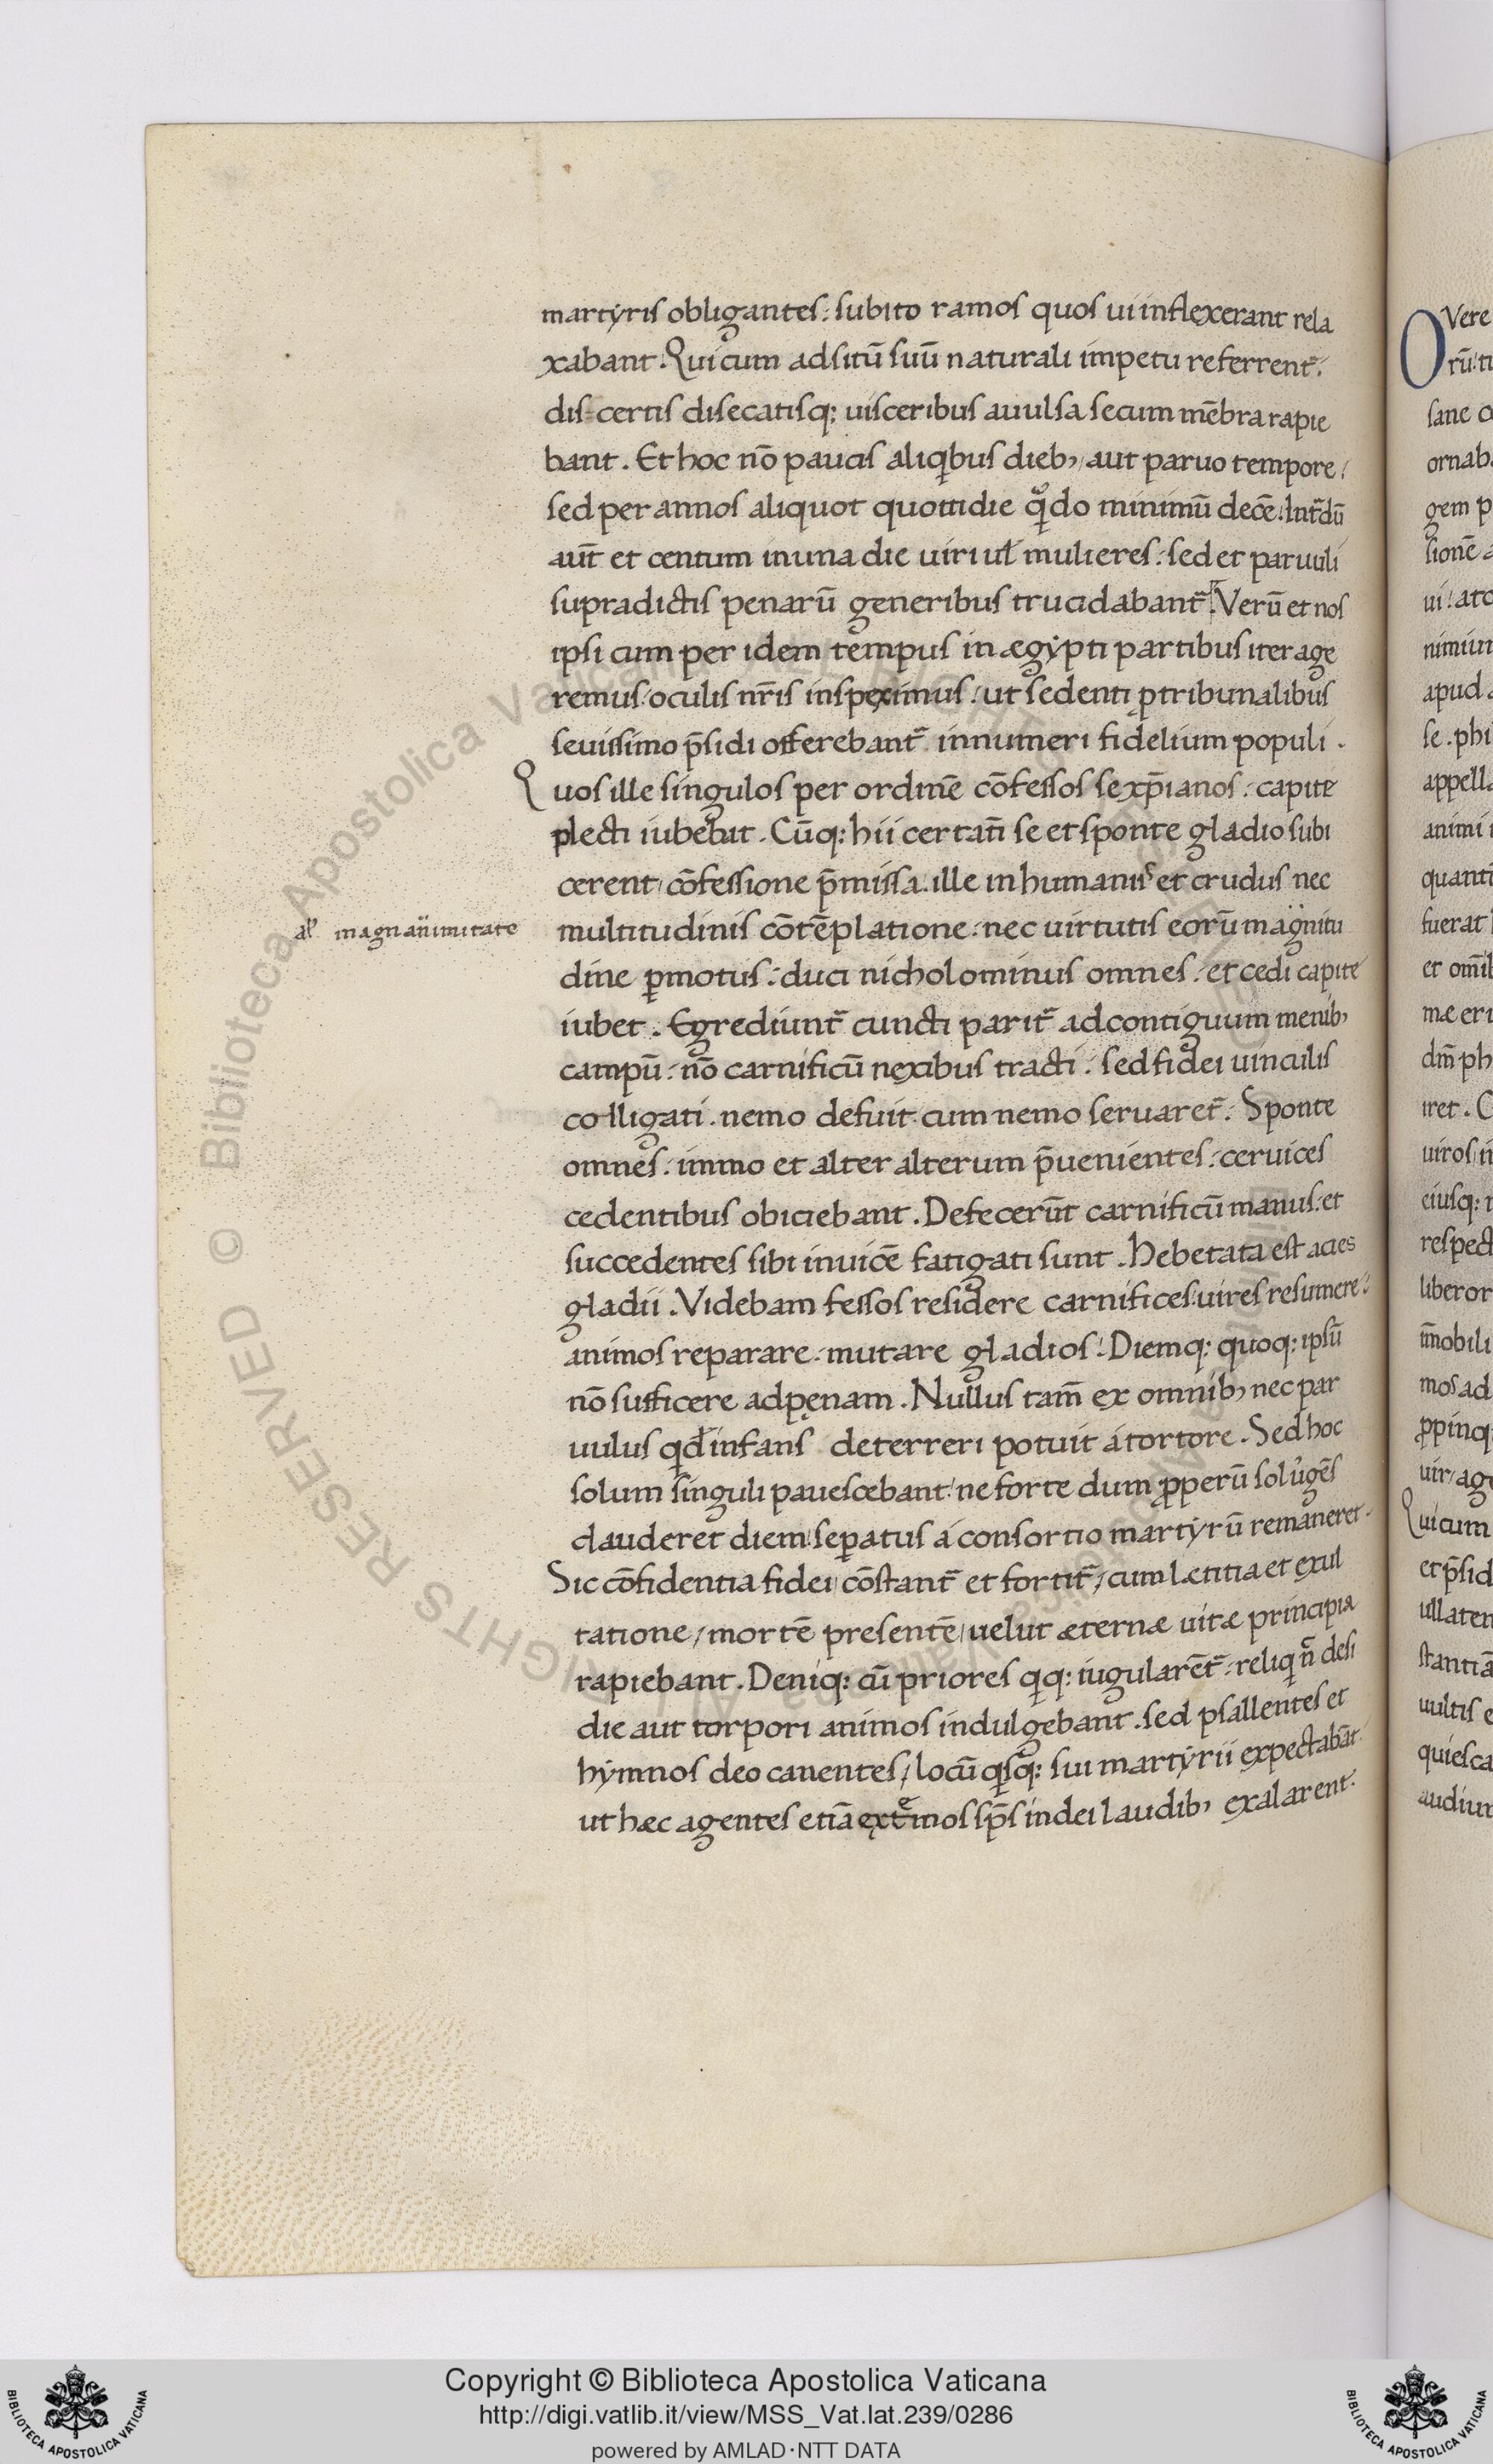 martyris obligantes: subito ramos quos ui inflexerant rela
xabant. Qui cum ad sitū suū naturali impetu referrent᷑:
dis-certis disecatisq: uisceribus auulsa secum mēbra rapie
bant. Et hoc nō paucis aliqibus dieb, aut paruo tempore:
sed per annos aliquot quottidie qn̄do minimū decē. Int᷑dū
aut̄ et centum in una die uiri ul̄ mulieres: sed et paruuli
supradictis penarū generibus trucidabant᷑. Verū et nos
ipsi cum per idem tempus in ægypti partibus iter age
remus: oculis nr̄is inspeximus: ut sedenti ꝓ tribunalibus
seuissimo p̄sidi offerebant᷑ innumeri fidelium populi.
Quos ille singulos per ordinē cōfessos se xp̄ianos: capite
plecti iubebat. Cūq: hii certatī se et sponte gladio subi
cerent, cōfessione p̄missa. ille inhumanus et crudus nec
al' magnanimitate
multitudinis cōtēplatione: nec uirtutis eorū magnitu
dine ꝑmotus: duci nicholominus omnes: et cedi capite
iubet. Egrediunt᷑ cuncti parit᷑ ad contiguum menib,
campū: nō carnificū nexibus tracti: sed fidei uinculis
colligati. nemo defuit cum nemo seruaret᷑. Sponte
omnes: immo et alter alterum p̄uenientes: ceruices
cedentibus obiciebant. Defecerūt carnificū manus: et
succedentes sibi inuicē fatigati sunt. hebetata est acies
gladii. Videbam fessos residere carnifices: uires resumere:
animos reparare: mutare gladios: Diemq: quoq: ipsū
nō sufficere ad pęnam. Nullus tam̄ ex omnib, nec par
uulus qd̄ infans deterreri potuit á tortore. Sed hoc
solum singuli pauescebant: ne forte dum ꝓperū sol ůgēs
clauderet diem: seꝑatus á consortio martyrū remaneret.
Sic cōfidentia fidei, cōstant᷑ et fortit᷑, cum lætitia et exul
tatione, mortē presentē, uelut æternæ uitæ principia
rapiebant. Deniq: cū priores qiq: iugularēt᷑: reliqi n̄ desi
die aut torpori animos indulgebant. sed psallentes et
hymnos deo canentes, locū qisq: sui martyrii expectabāt
ut hæc agentes etiā ext᷑mos sp̄s in dei laudib, exalarent.
Copyright © Biblioteca Apostolica Vaticana
http://digi.vatlib.it/view/MSS_Vat.lat.239/0286
powered by AMLAD·NTT DATA